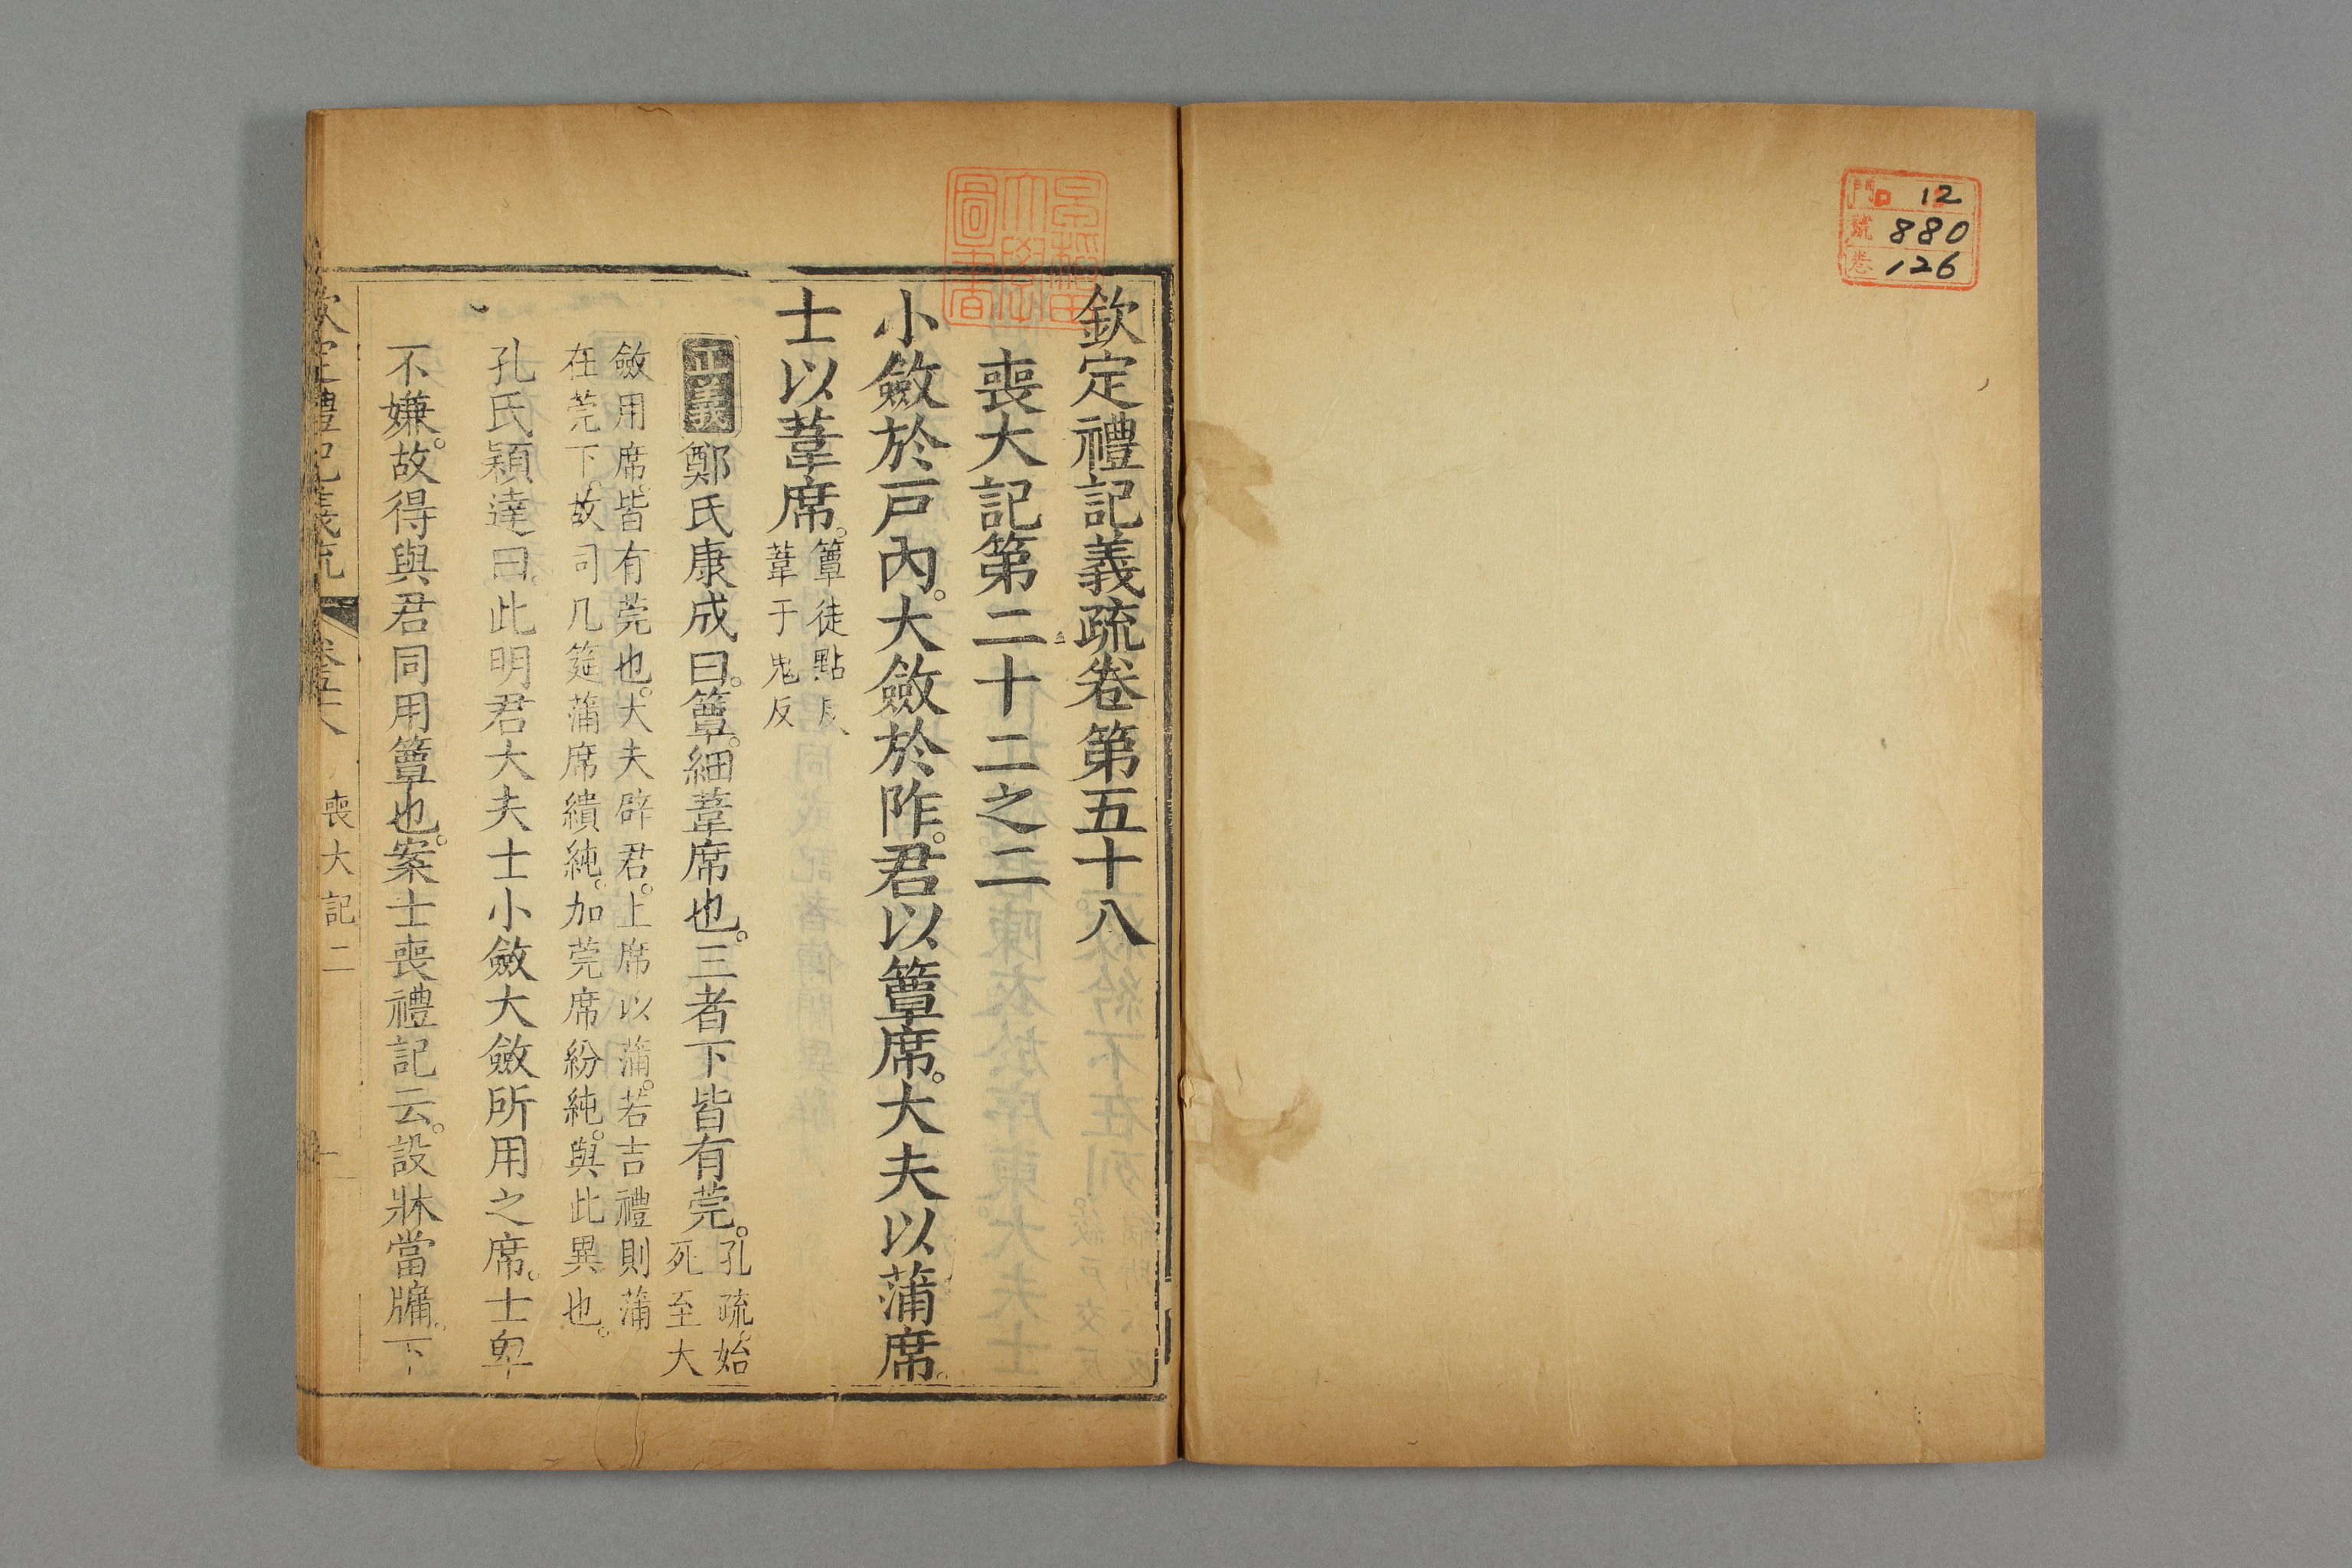 門 12
號 880
卷 126
早稻田大學圖書
欽定禮記義疏卷第五十八
喪大記第二十二之二
小斂於戸內。大斂於阼。君以簟席。大夫以蒲席。
士以葦席。簟徒點反
葦于鬼反
正義鄭氏康成曰。簟。細葦席也。三者下皆有莞。孔疏。始
死至大
斂用席。皆有莞也。大夫辟君。上席以蒲。若吉禮則蒲
在莞下。故司几筵蒲席繢純。加莞席紛純。與此異也。
孔氏穎達曰。此明君大夫士小斂大斂所用之席。士卑
不嫌。故得與君同用簟也。案士喪禮記云。設牀當牖。下
欽定禮記義疏 卷五十八 喪大記二 一